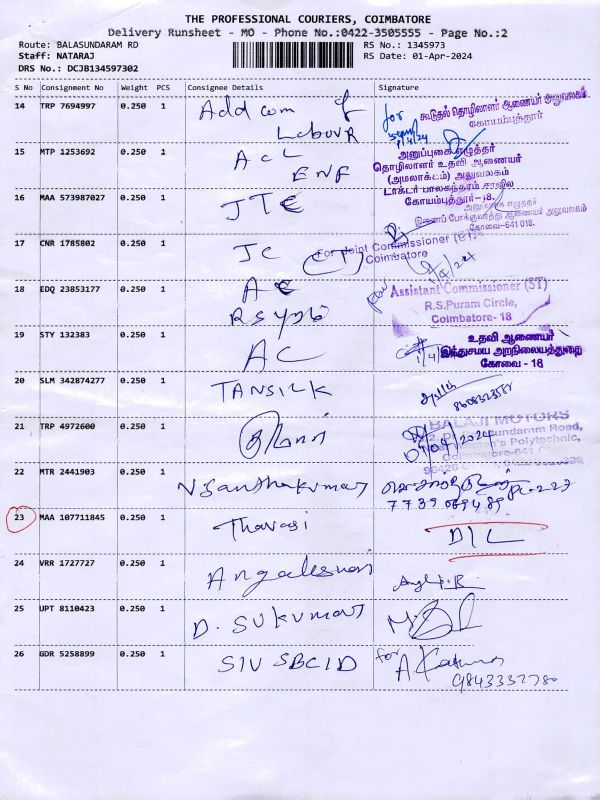 THE PROFESSIONAL COURIERS, COIMBATORE
Delivery Runsheet - MO - Phone No.:0422-3505555 - Page No.:2
Route: BALASUNDARAM RD
RS No.: 1345973
Staff: NATARAJ
RS Date: 01-Apr-2024
DRS No.: DCJB134597302
S No Consignment No Weight PCS Consignee Details Signature
14 TRP 7694997 0.250 1 Add com of for கூடுதல் தொழிலாளர் ஆணையர் அலுவலகம்
Labour கோயம்புத்தூர்
15 MTP 1253692 0.250 1 ACL அனுப்புகை எழுத்தர்
தொழிலாளர் உதவி ஆணையர்
ENF (அமலாக்கம்) அலுவலகம்
டாக்டர் பாலசுந்தரம் சாலை
16 MAA 573987027 0.250 1 JTC கோயமுத்தூர்-18.
கோவை-641 018.
17 CNR 1785802 0.250 1 JC For Joint Commissioner
Coimbatore
18 EDQ 23853177 0.250 1 AC Assistant Commissioner (ST)
RS புரம் R.S.Puram Circle,
Coimbatore- 18
19 STY 132383 0.250 1 AC உதவி ஆணையர்
இந்துசமய அறநிலையத்துறை
கோவை - 18
20 SLM 342874277 0.250 1 TANSILK
21 TRP 4972600 0.250 1 BALAJI MOTORS
01/04/2024
22 MTR 2441903 0.250 1 N Santhakumar PC-227
7739069489
23 MAA 107711845 0.250 1 Thavasi D/L
24 VRR 1727727 0.250 1 Angaleswari
25 UPT 8110423 0.250 1 D. SUKUMAR
26 GDR 5258899 0.250 1 SIU SBCID for
9843332780